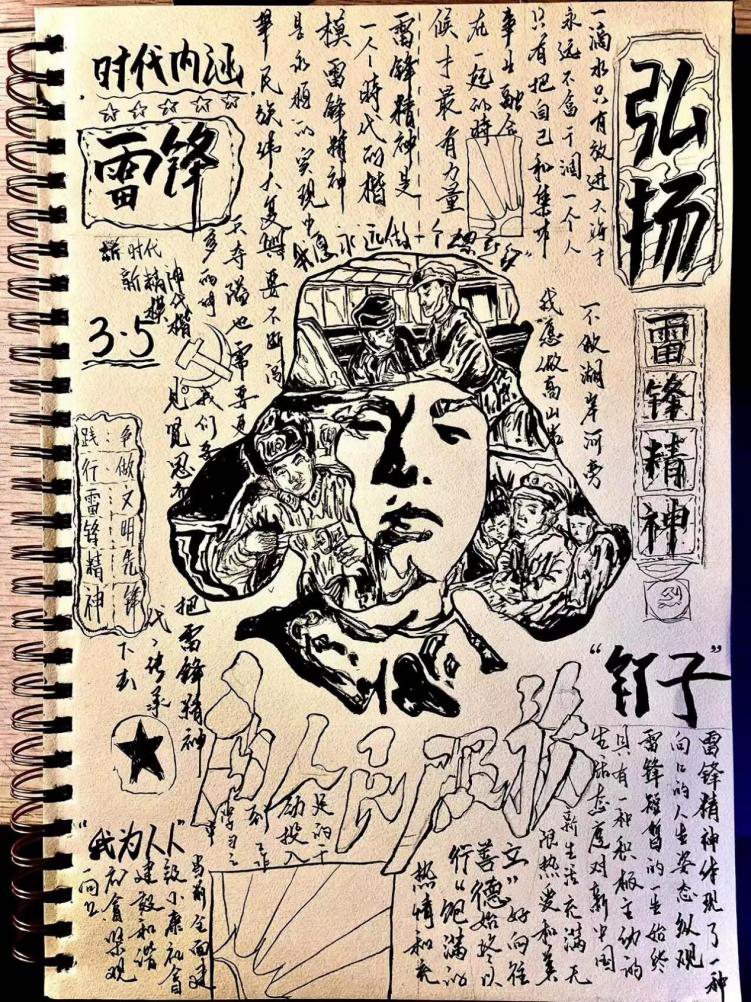 弘扬
一滴水只有放进大海才
永远不会干涸一个人
只有把自己和集体
事业融合
在一起的时
候才最有力量
雷锋精神是
一个時代的楷
模雷锋精神
是永恒的实现中
华民族伟大复兴要不断闯
时代内涵
雷锋
新时代
新精神
3·5
见贤思齐
我愿永远做一个
不做湖岸河旁
我愿做高山岩
雷锋精神
争做文明先锋
践行雷锋精神
把雷锋精神
代代传承
下去
为人民服务
“钉子”
雷锋精神体现了一种
向上的人生姿态纵观
雷锋短暂的一生始终
具有一种积极主动的
生活态度对新中国
新生活充满无
限热爱和美
好向往
善德始终以
饱满的
热情和充
“我为人人”
当前全面建
设小康社会
建设和谐
社会紧观